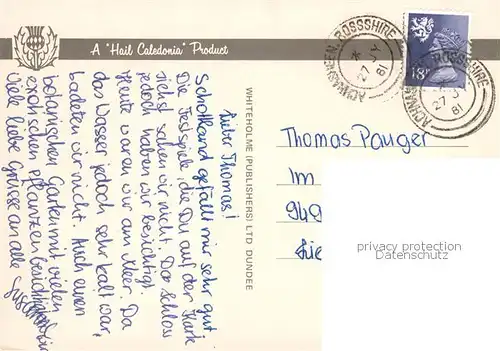 A "Hail Caledonia" Product
Lieber Thomas!
Schottland gefällt mir sehr gut.
Die Festspiele, die Du auf der Karte
siehst sahen wir nicht. Das Schloss
jedoch haben wir besichtigt.
Heute waren wir am Meer. Da
das Wasser jedoch sehr kalt war,
badeten wir nicht. Auch einen
botanischen Garten mit vielen
exotischen Pflanzen besichtigten wir.
Viele liebe Grüsse an alle
WHITEHOLME (PUBLISHERS) LTD DUNDEE
ACHNASHEEN, ROSSSHIRE
27 JY
81
ACHNASHEEN, ROSSSHIRE
27 JY
81
18P
Thomas Pauger
Im
949
Lie
privacy protection
Datenschutz